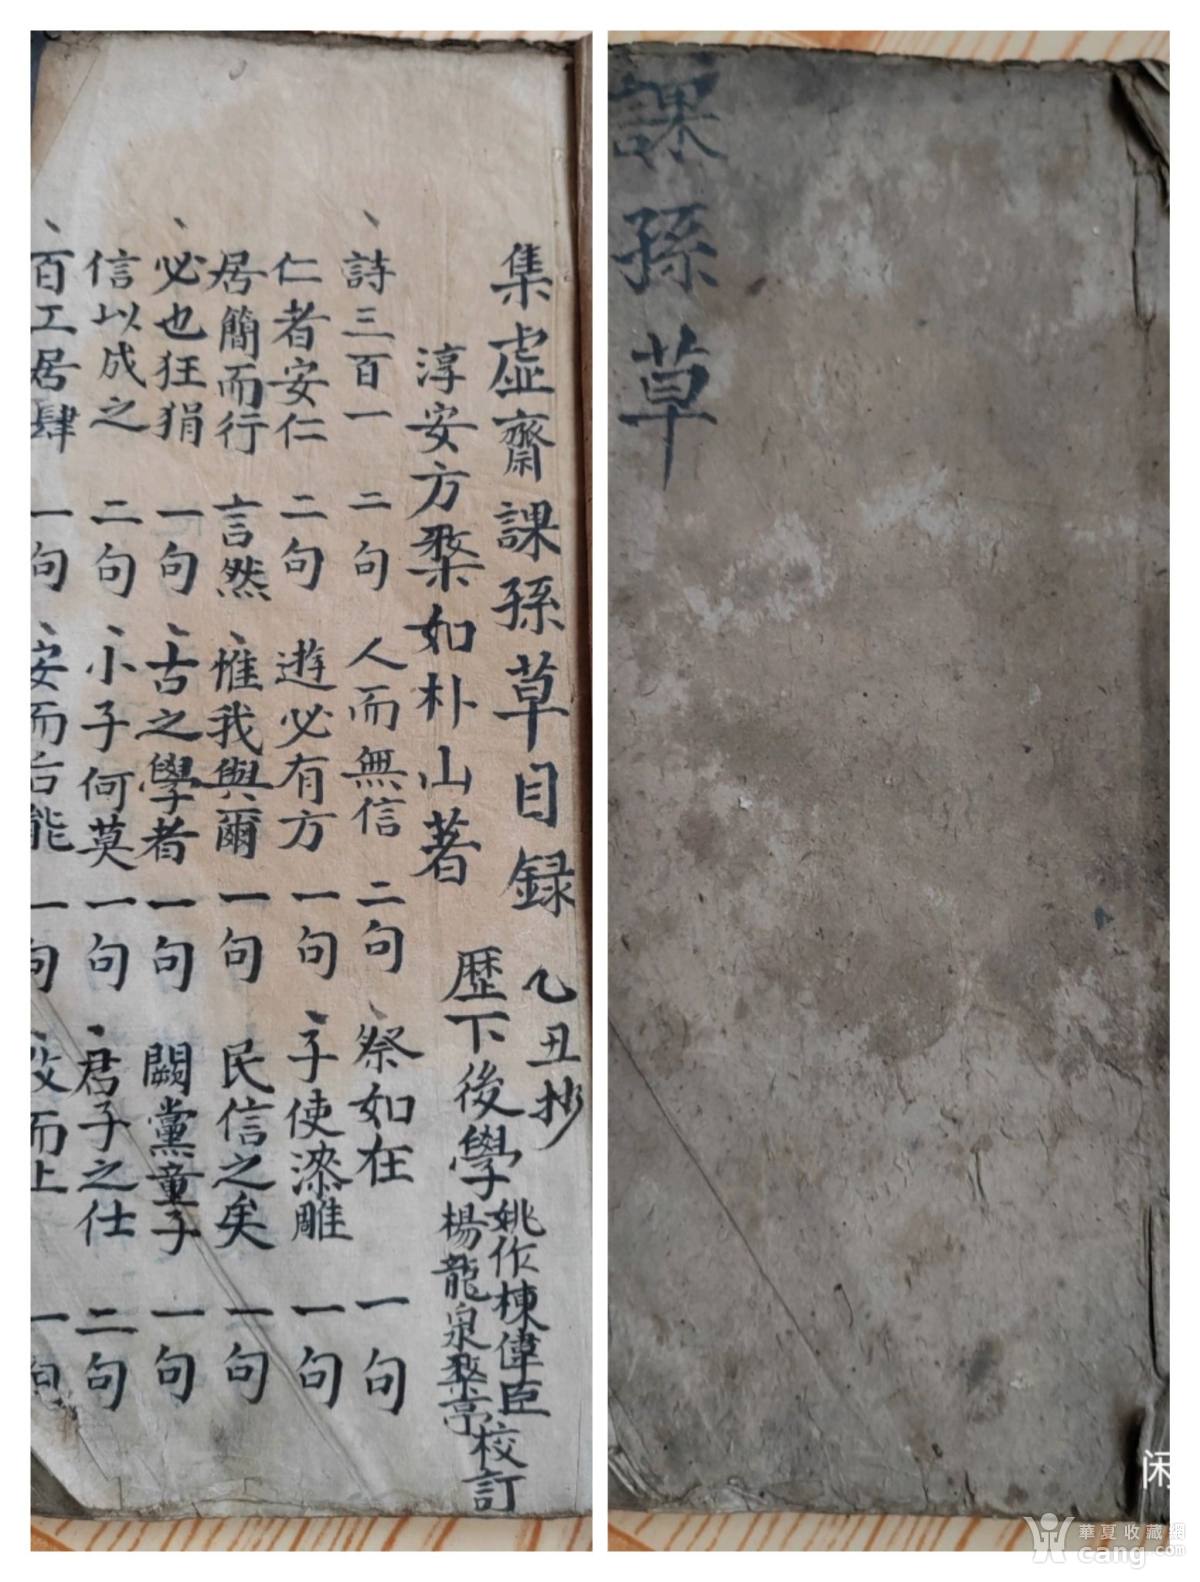 集虛齋課孫草目録 乙丑抄
淳安方楘如朴山著 歷下後學 姚作棟偉臣 楊龍泉楘亭 校訂
、詩三百一 二句 人而無信 二句 、祭如在 一句
仁者安仁 二句 遊必有方 一句 、子使漆雕 一句
居簡而行 言然 、惟我與爾 一句 民信之矣 一句
、必也狂狷 一句 、古之學者 一句 闕黨童子 一句
信以成之 二句 、小子何莫 一句 、君子之仕 二句
、百工居肆 一句 、安而后能 一句 而上 一句
課孫草
闲
華夏收藏網
cang.com